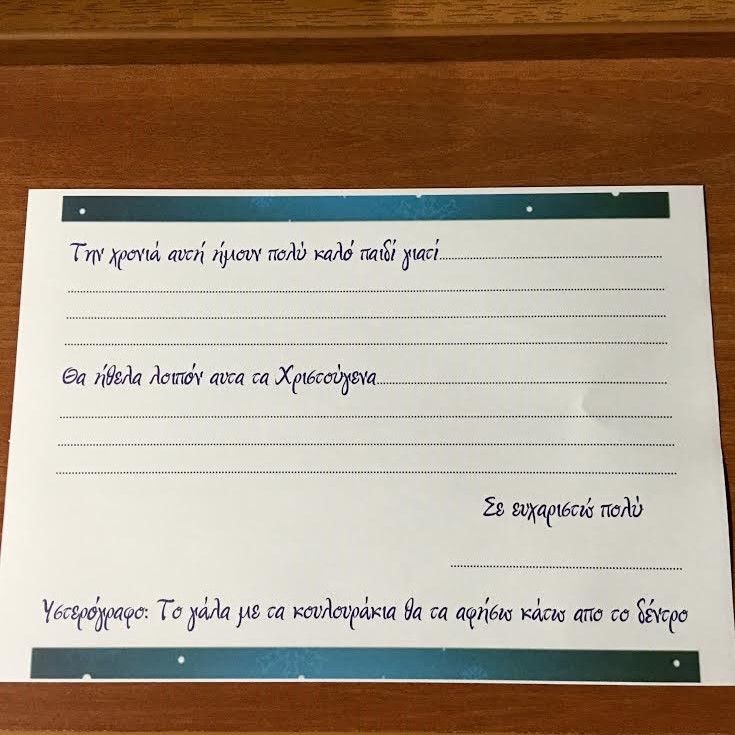 Την χρονιά αυτή ήμουν πολύ καλό παιδί γιατί..............................
Θα ήθελα λοιπόν αυτα τα Χριστούγενα..............................
Σε ευχαριστώ πολύ
Υστερόγραφο: Το γάλα με τα κουλουράκια θα τα αφήσω κάτω απο το δέντρο